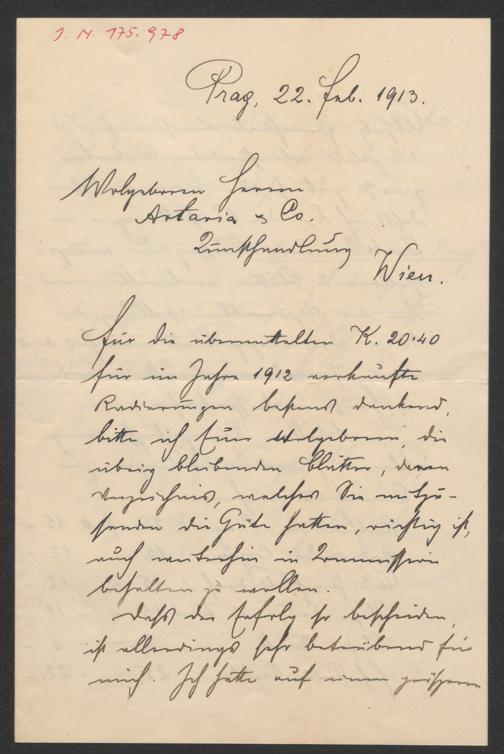 J. N. 175.978
Prag, 22. Feb. 1913.
Wolgeboren Herrn
Artaria & Co.
Kunsthandlung
Wien.
Für die übermittelten K. 20·40
für im Jahre 1912 verkaufte
Radierungen bestens dankend,
bitte ich Euer Wolgeboren, die
übrig bleibenden Blätter, deren
Verzeichnis, welches Sie mitzu-
senden die Güte hatten, richtig ist,
auch weiterhin in Kommission
behalten zu wollen.
Dass der Erfolg so bescheiden
ist allerdings sehr betrübend für
mich. Ich hatte auf einen grösseren